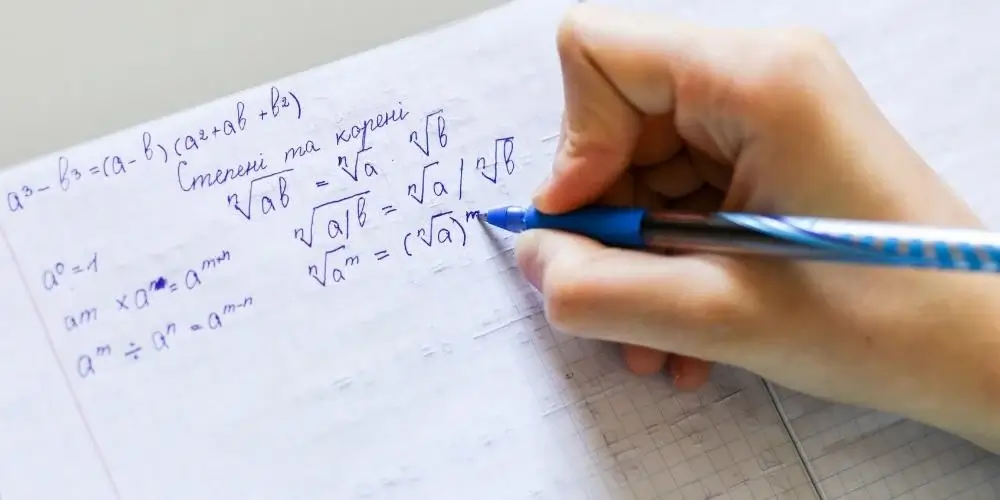 a³ - b³ = (a - b) (a² + ab + b²)
Степені та корені
ⁿ√ab = ⁿ√a · ⁿ√b
ⁿ√a|b = ⁿ√a | ⁿ√b
ⁿ√aᵐ = (ⁿ√a)ᵐ
a⁰ = 1
am × aⁿ = aᵐ⁺ⁿ
aᵐ ÷ aⁿ = aᵐ⁻ⁿ